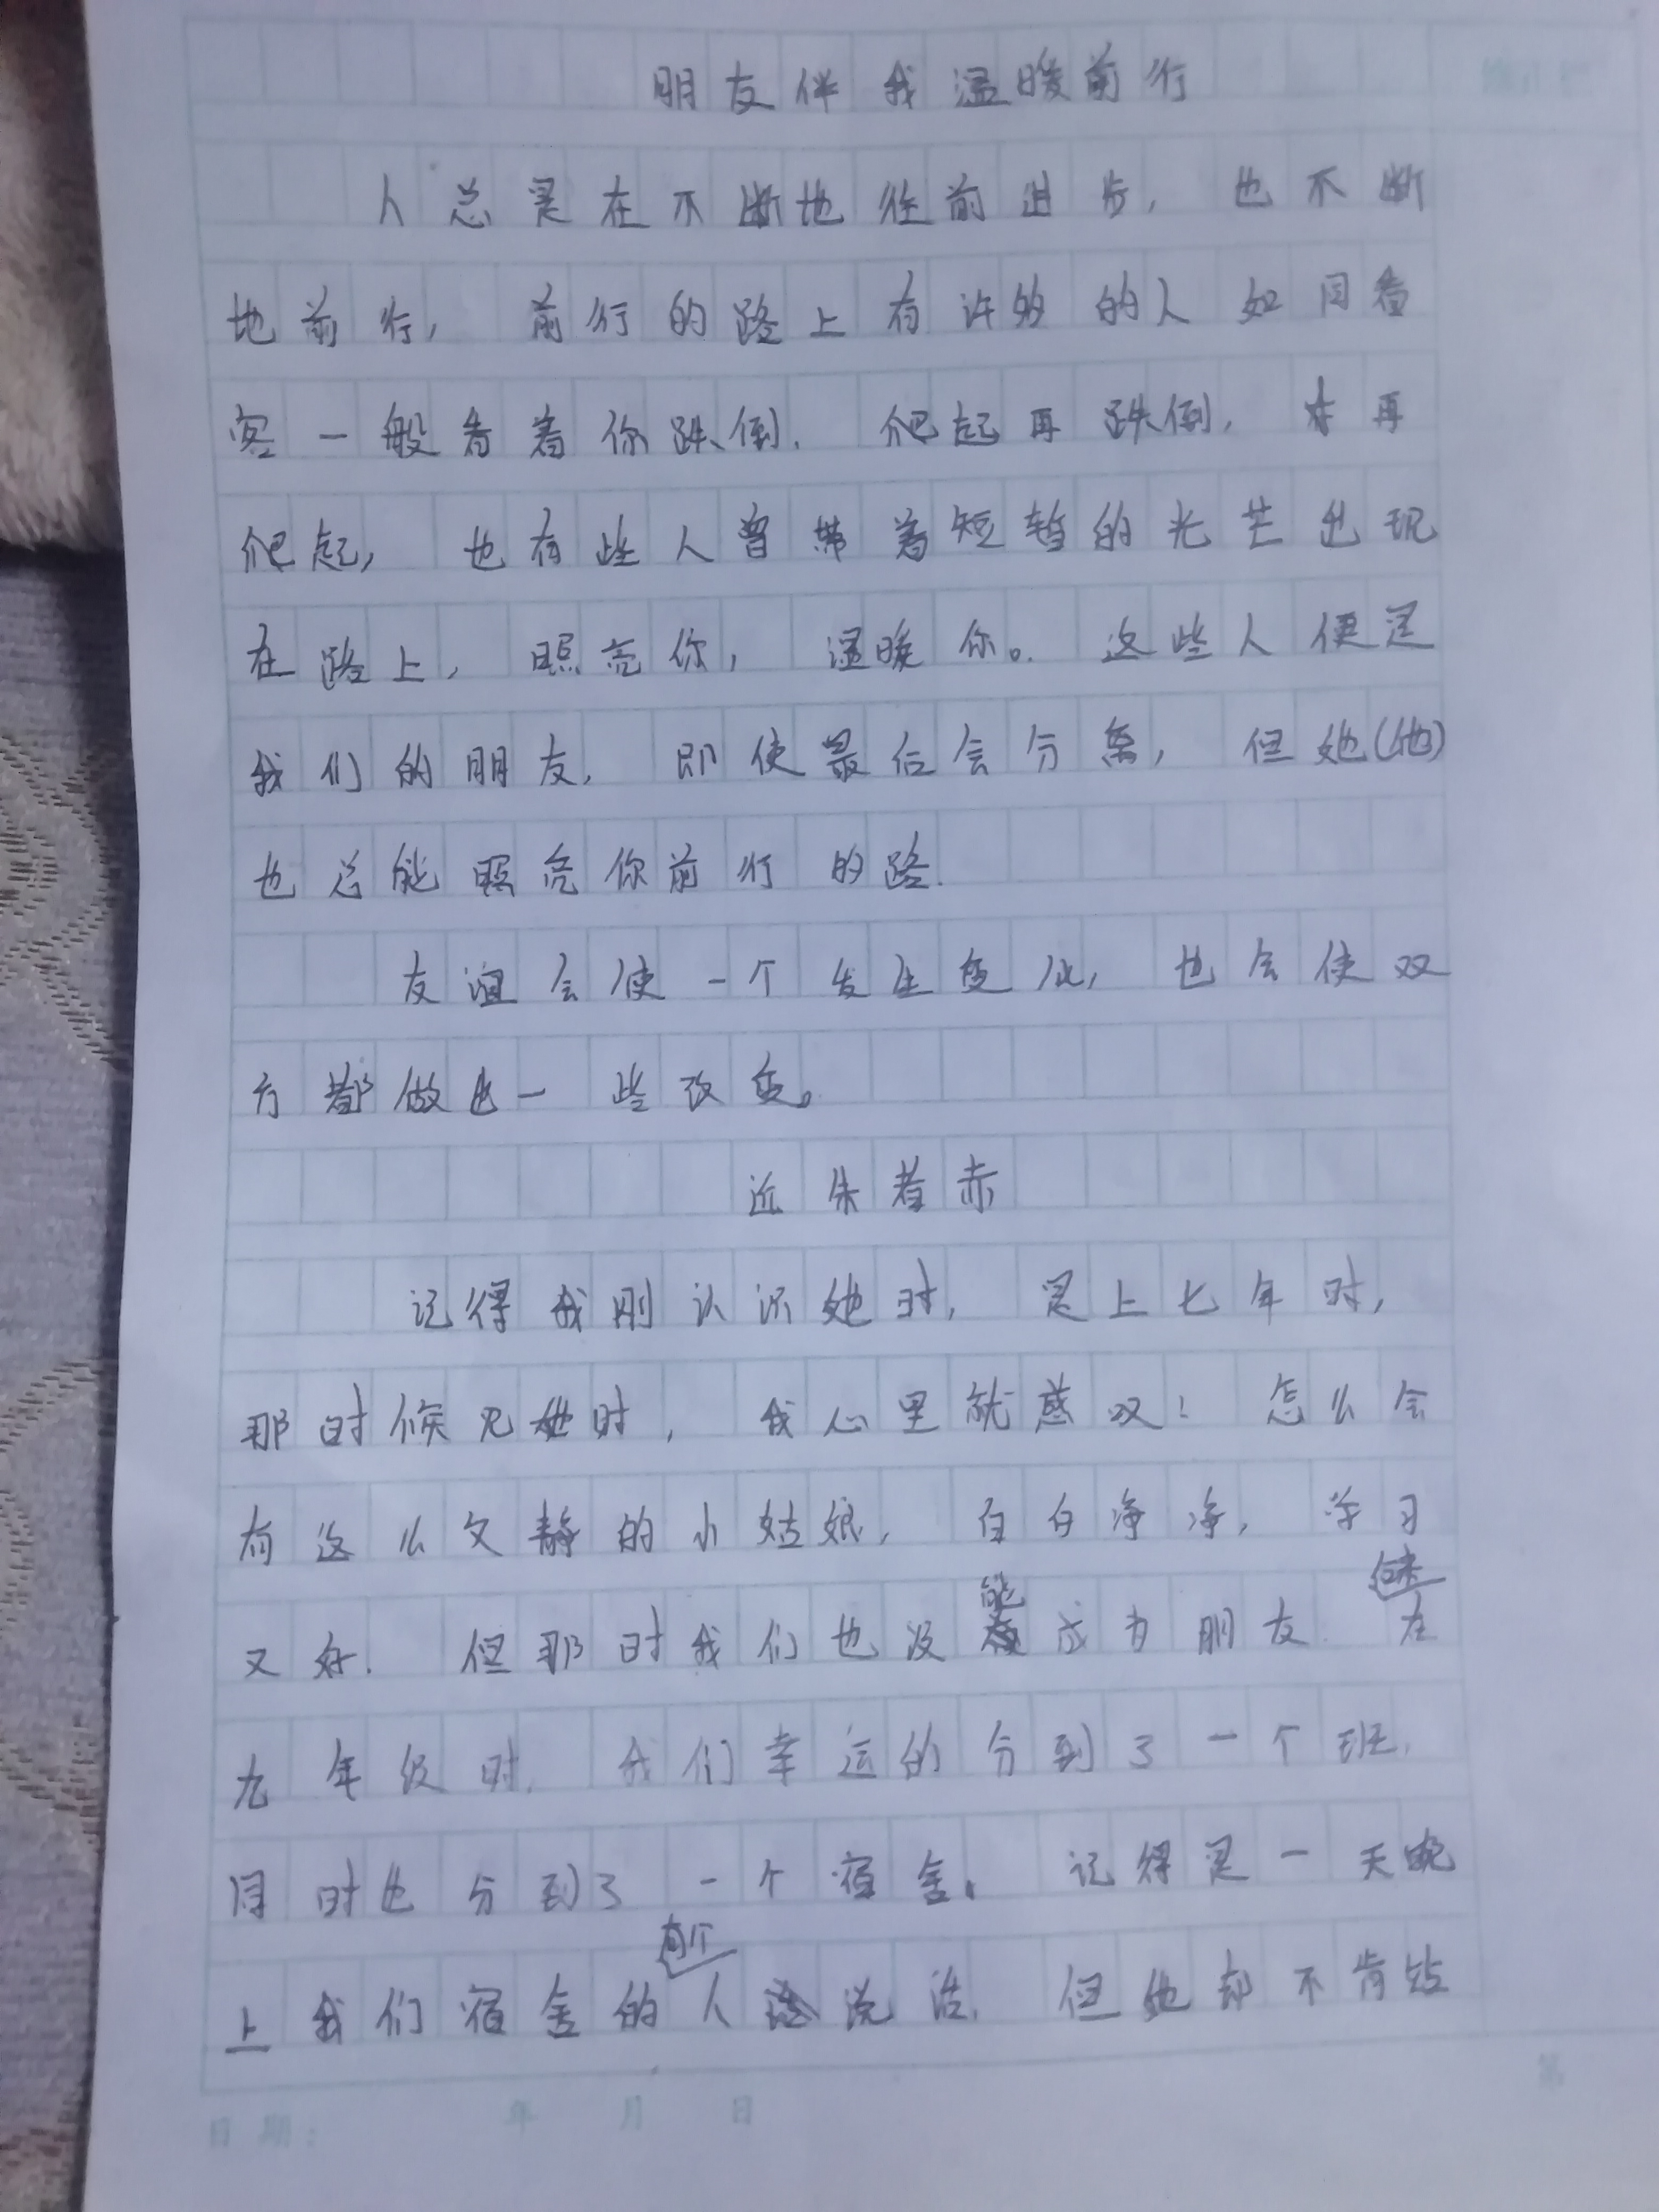 朋友伴我温暖前行
人总是在不断地往前进步，也不断
地前行，前行的路上有许多的人如同看
客一般看着你跌倒，爬起再跌倒，再
爬起，也有些人曾带着短暂的光芒出现
在路上，照亮你，温暖你。这些人便是
我们的朋友，即使最后会分离，但她(他)
也总能照亮你前行的路.
友谊会使一个发生变化，也会使双
方都做出一些改变。
近朱者赤
记得我刚认识她时，是上七年时，
那时候见她时，我心里就感叹！怎么会
有这么文静的小姑娘，白白净净，学习
又好.但那时我们也没能成为朋友.后来在
九年级时.我们幸运的分到了一个班.
同时也分到了一个宿舍。记得是一天晚
上我们宿舍的有个人说话.但她却不肯站
日期： 年 月 日
第